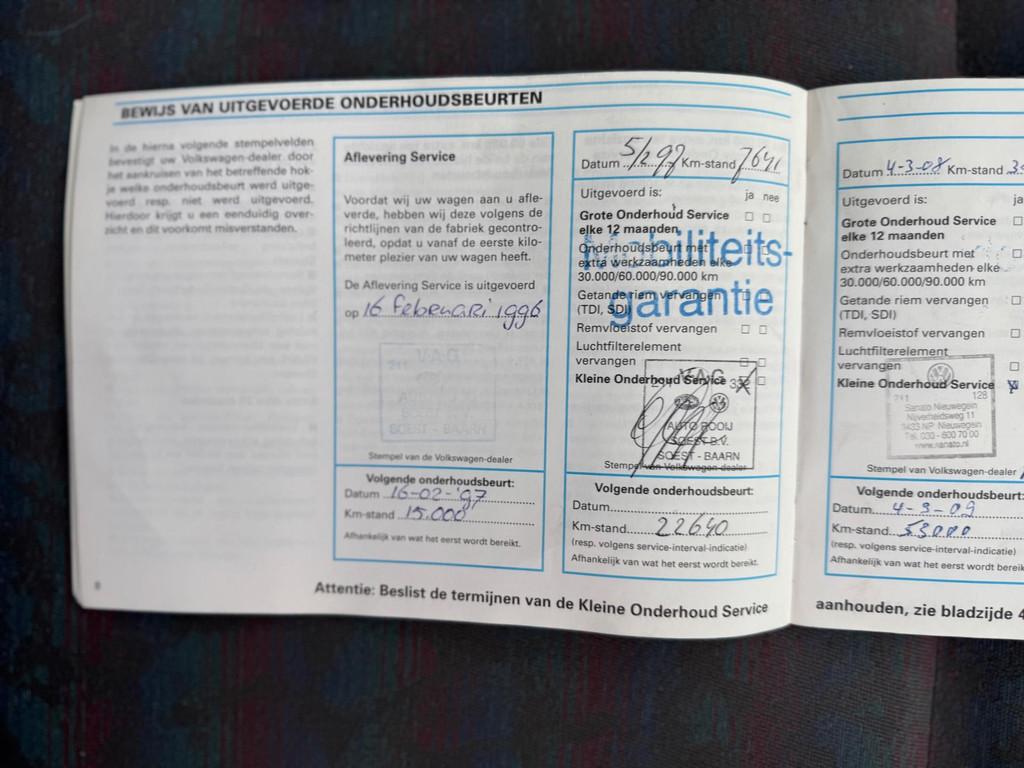 BEWIJS VAN UITGEVOERDE ONDERHOUDSBEURTEN
In de hierna volgende stempelvelden
bevestigt uw Volkswagen-dealer door
het aankruisen van het betreffende hok-
je welke onderhoudsbeurt werd uitge-
voerd resp. niet werd uitgevoerd.
Hierdoor krijgt u een eenduidig over-
zicht en dit voorkomt misverstanden.
Aflevering Service
Voordat wij uw wagen aan u afle-
verde, hebben wij deze volgens de
richtlijnen van de fabriek gecontro-
leerd, opdat u vanaf de eerste kilo-
meter plezier van uw wagen heeft.
De Aflevering Service is uitgevoerd
op 16 Februari 1996
V.A.G.
211
SOEST - BAARN
Stempel van de Volkswagen-dealer
Volgende onderhoudsbeurt:
Datum 16-02-'97
Km-stand 15.000
Afhankelijk van wat het eerst wordt bereikt.
Datum 5/2 97 Km-stand 7641
Uitgevoerd is: ja nee
Grote Onderhoud Service
elke 12 maanden
Onderhoudsbeurt met
extra werkzaamheden elke
30.000/60.000/90.000 km
Mobiliteits-
garantie
Getande riem vervangen
(TDI, SDI)
Remvloeistof vervangen
Luchtfilterelement
vervangen
Kleine Onderhoud Service
V.A.G.
AUTO ROOIJ
SOEST B.V.
SOEST - BAARN
Stempel van Volkswagen-dealer
Volgende onderhoudsbeurt:
Datum
Km-stand 22640
(resp. volgens service-interval-indicatie)
Afhankelijk van wat het eerst wordt bereikt.
Datum 4-3-08 Km-stand
Uitgevoerd is: ja
Grote Onderhoud Service
elke 12 maanden
Onderhoudsbeurt met
extra werkzaamheden elke
30.000/60.000/90.000 km
Getande riem vervangen
(TDI, SDI)
Remvloeistof vervangen
Luchtfilterelement
vervangen
Kleine Onderhoud Service
211 128
Sanato Nieuwegein
Nijverheidsweg 11
3433 NP Nieuwegein
Tel. 030 - 600 70 00
www.sanato.nl
Stempel van Volkswagen-dealer
Volgende onderhoudsbeurt:
Datum 4-3-09
Km-stand 53000
(resp. volgens service-interval-indicatie)
Afhankelijk van wat het eerst wordt
8
Attentie: Beslist de termijnen van de Kleine Onderhoud Service
aanhouden, zie bladzijde 4